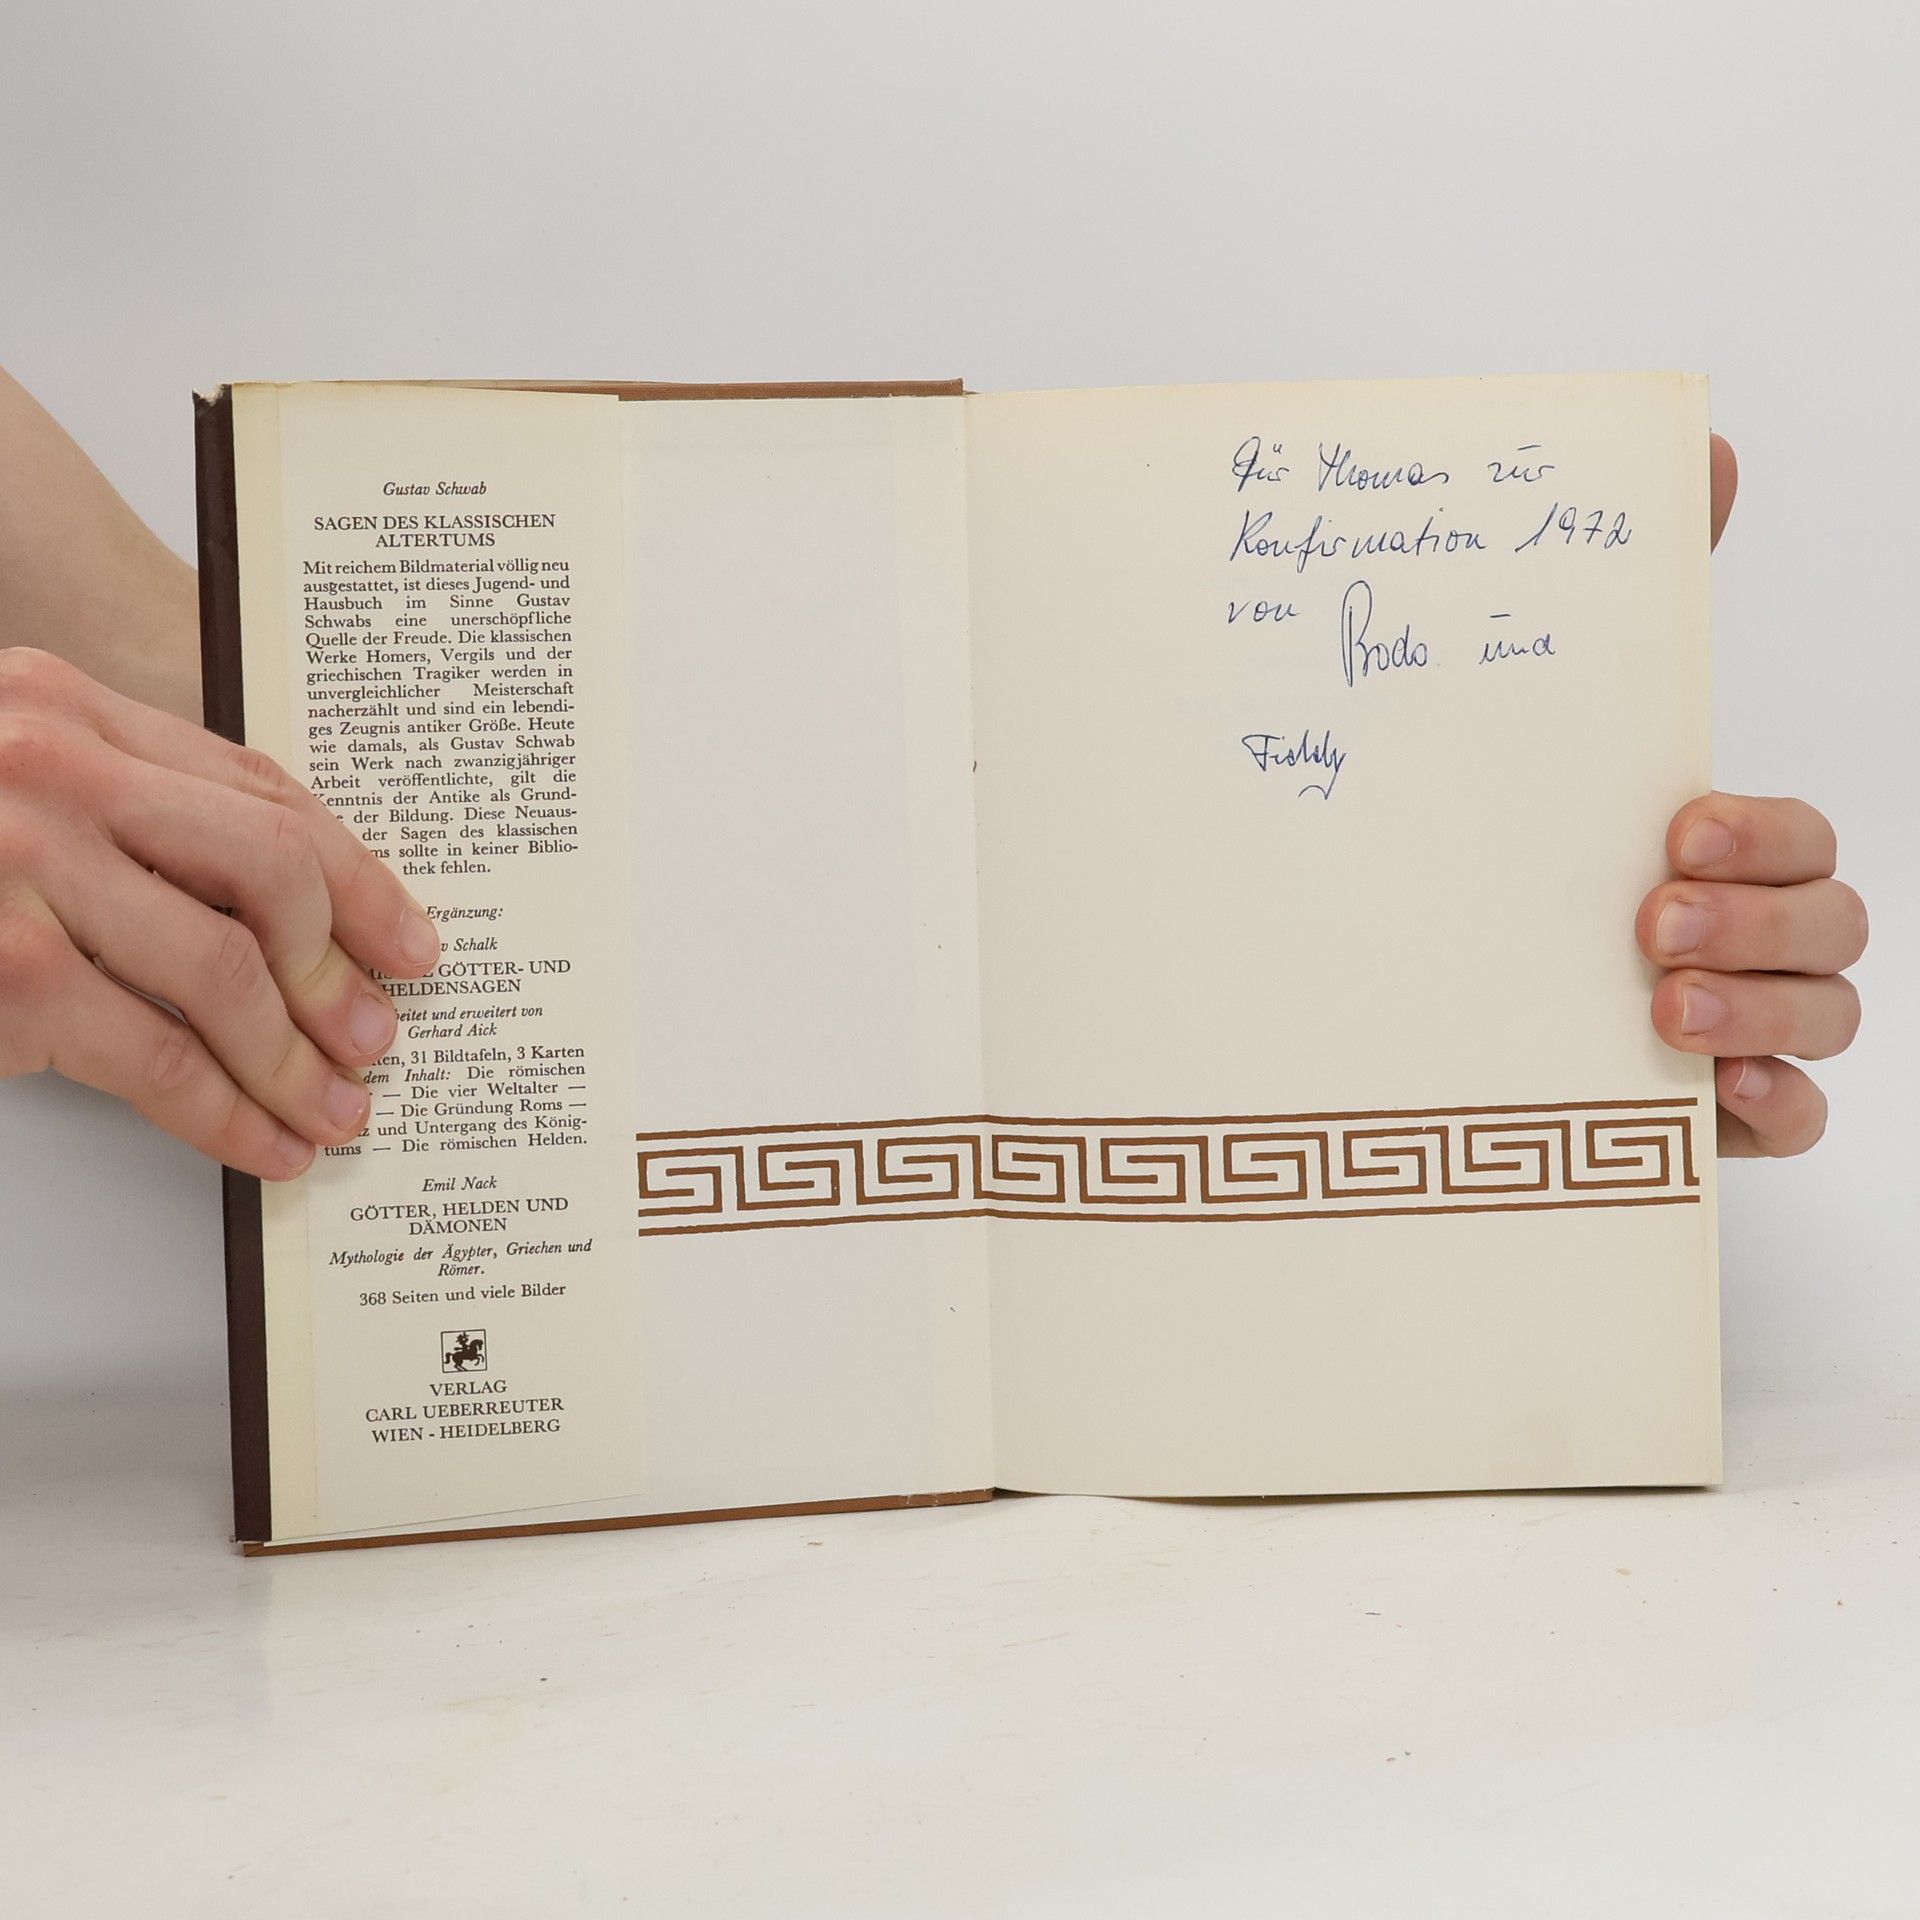 Gustav Schwab
SAGEN DES KLASSISCHEN
ALTERTUMS
Mit reichem Bildmaterial völlig neu
ausgestattet, ist dieses Jugend- und
Hausbuch im Sinne Gustav
Schwabs eine unerschöpfliche
Quelle der Freude. Die klassischen
Werke Homers, Vergils und der
griechischen Tragiker werden in
unvergleichlicher Meisterschaft
nacherzählt und sind ein lebendi-
ges Zeugnis antiker Größe. Heute
wie damals, als Gustav Schwab
sein Werk nach zwanzigjähriger
Arbeit veröffentlichte, gilt die
Kenntnis der Antike als Grund-
der Bildung. Diese Neuaus-
der Sagen des klassischen
sollte in keiner Biblio-
thek fehlen.
Ergänzung:
Schalk
GÖTTER- UND
HELDENSAGEN
und erweitert von
Gerhard Aick
31 Bildtafeln, 3 Karten
dem Inhalt: Die römischen
— Die vier Weltalter —
— Die Gründung Roms —
und Untergang des König-
tums — Die römischen Helden.
Emil Nack
GÖTTER, HELDEN UND
DÄMONEN
Mythologie der Ägypter, Griechen und
Römer.
368 Seiten und viele Bilder
VERLAG
CARL UEBERREUTER
WIEN - HEIDELBERG
Für Thomas zur
Konfirmation 1972
von Bodo und